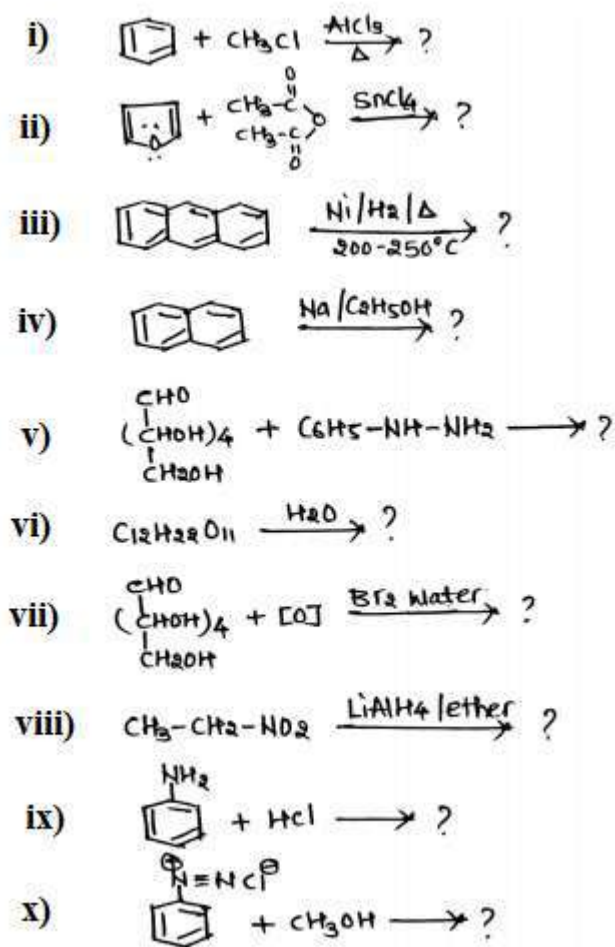 i) + CH3Cl AlCl3 Δ → ?
ii) O + CH3-C=O O CH3-C=O SnCl4 → ?
iii) Ni/H2/Δ 200-250°C → ?
iv) Na/C2H5OH → ?
v) CHO (CHOH)4 CH2OH + C6H5-NH-NH2 → ?
vi) C12H22O11 H2O → ?
vii) CHO (CHOH)4 CH2OH + [O] Br2 Water → ?
viii) CH3-CH2-NO2 LiAlH4/ether → ?
ix) NH2 + HCl → ?
x) ⊕N≡N Cl⊖ + CH3OH → ?